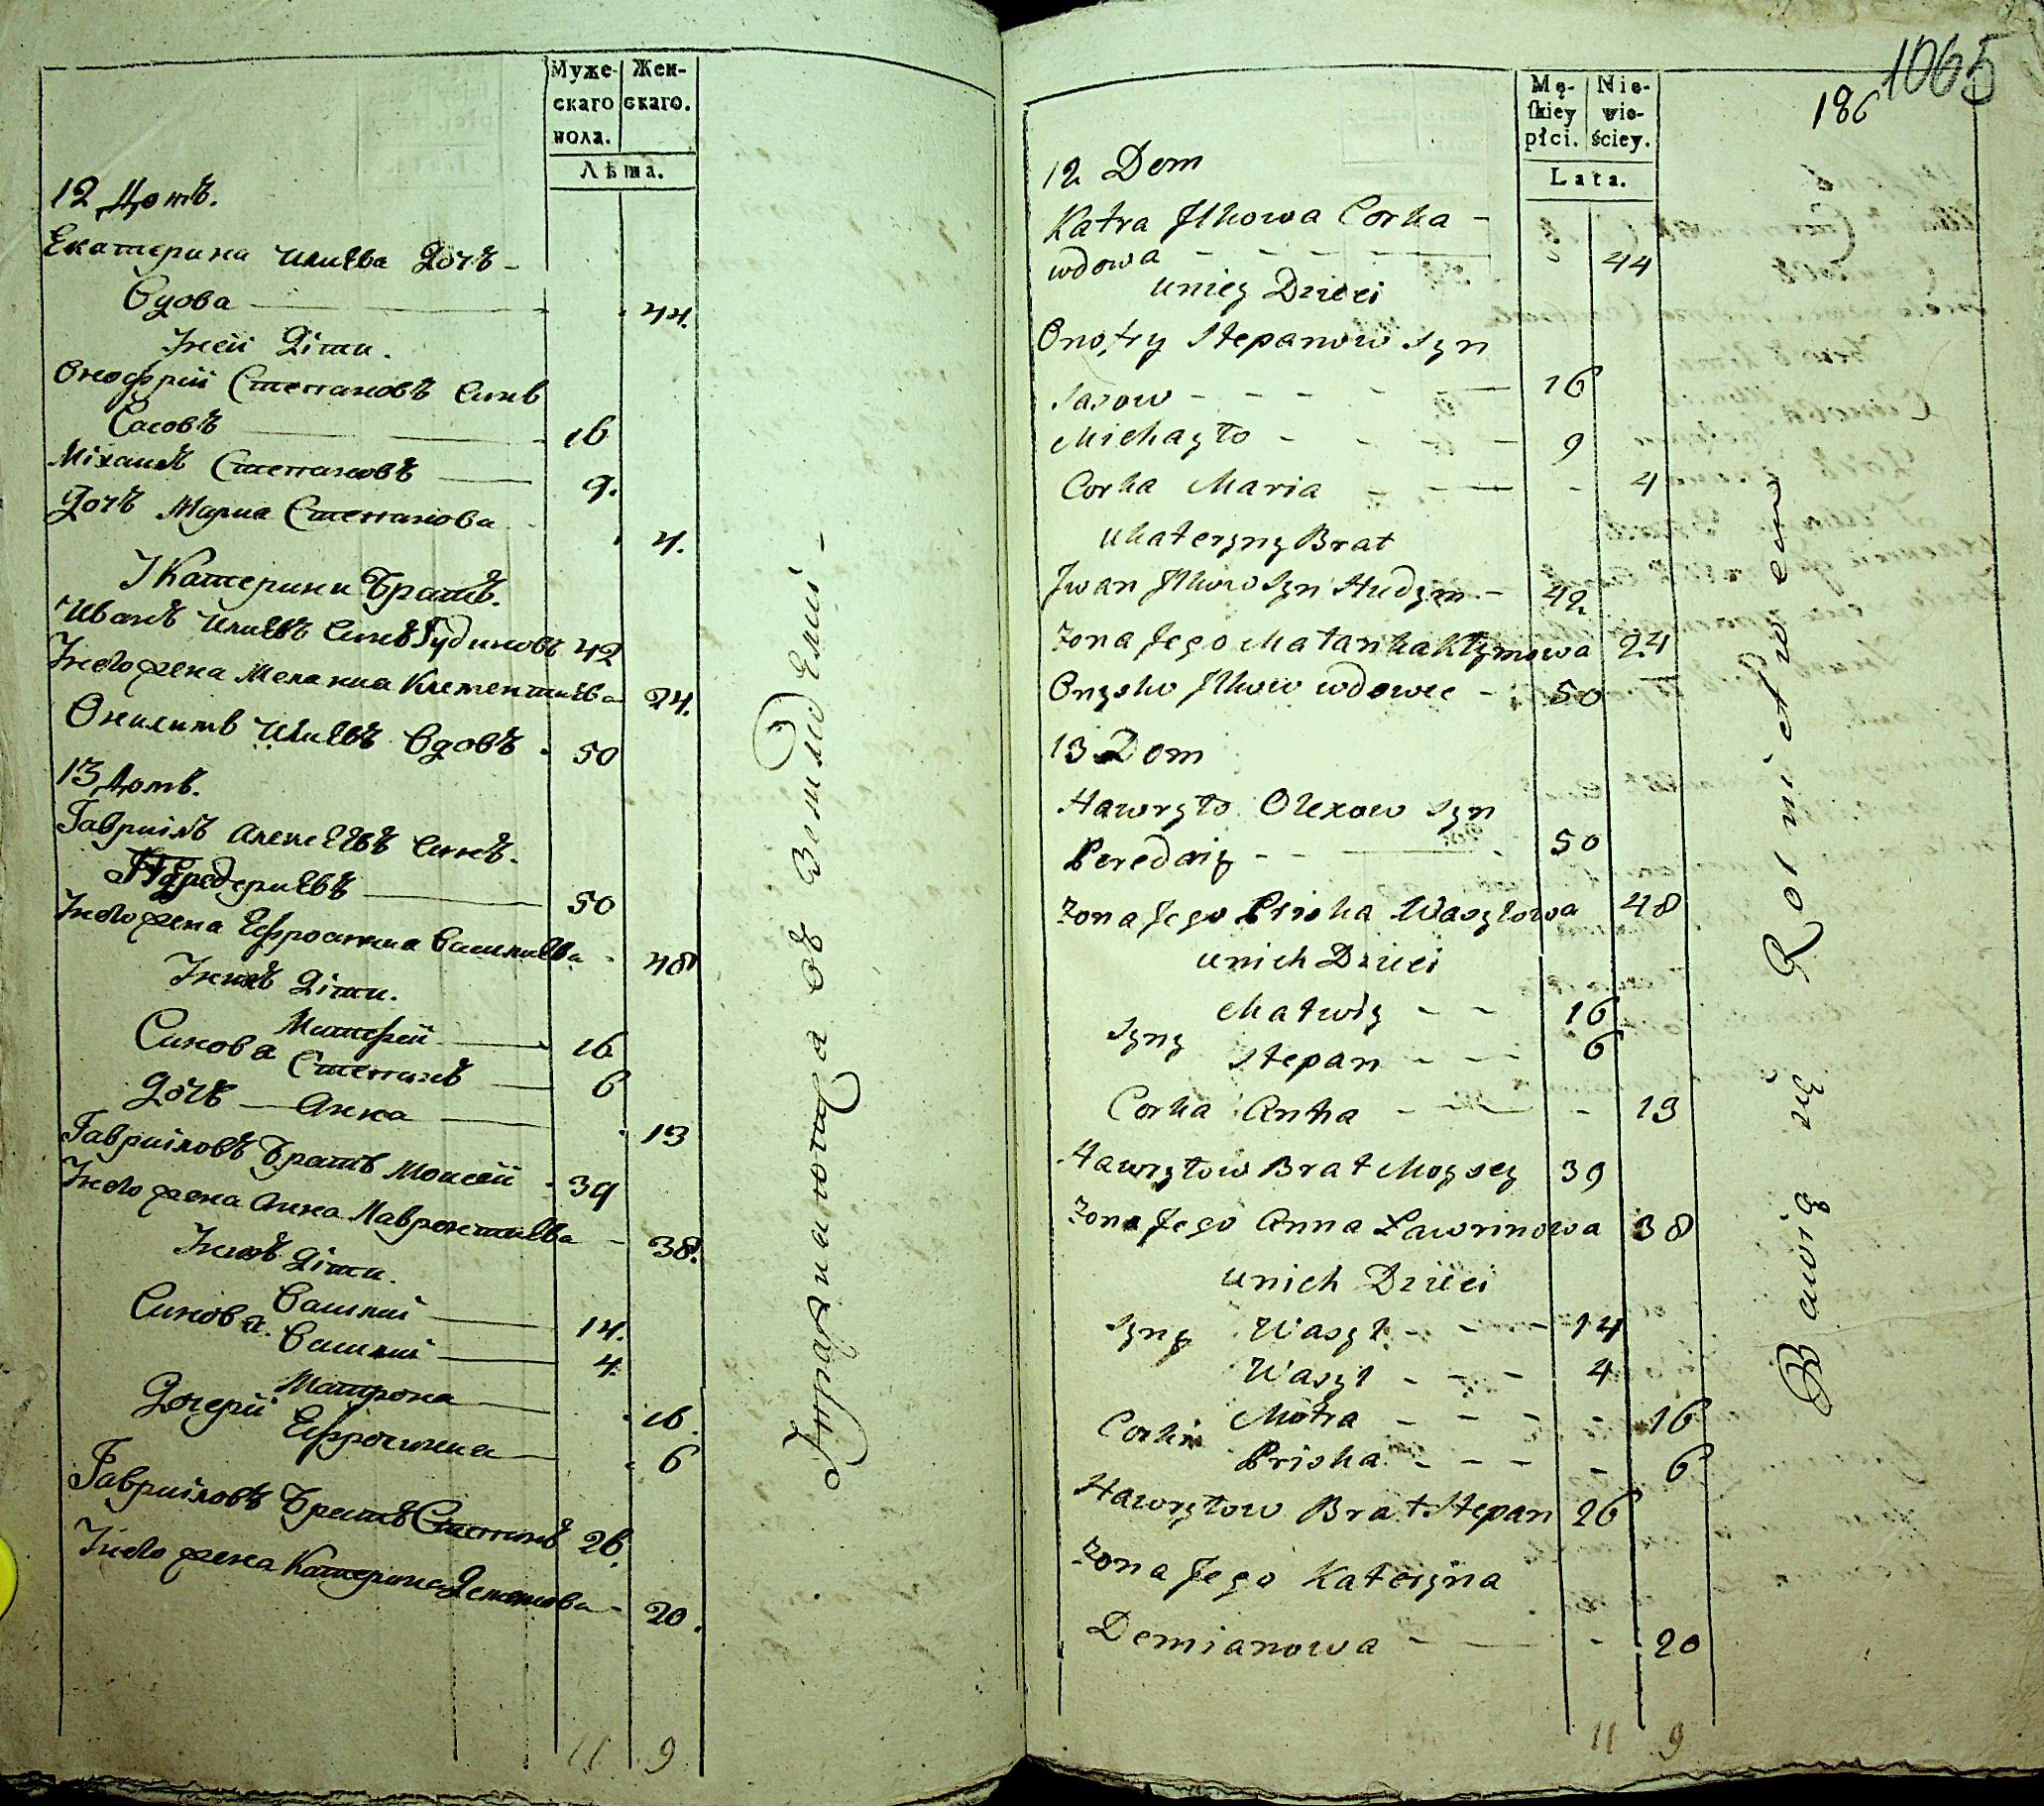 Муже-
скаго
пола.
Жен-
скаго.
Лѣта.
12 Домъ.
Екатерина Илиева Дочь -
Вдова 44.
Унеи Дѣти.
Онофрій Степановъ Синъ
Сасовъ 16
Міхаилъ Степановъ 9.
Дочь Мариа Степанова 4.
У Катерини Братъ.
Иванъ Илиевъ Синъ Гудимовъ 42
Унего жена Меланиа Климентиева 24.
Онилитъ Илиевъ Вдовъ 50
13 Домъ.
Гавриілъ Алексѣевъ Синъ.
Передериевъ 50
Унего жена Ефросиниа Василиева 48
Унихъ Дѣти.
Матфей 16
Синова
Степанъ 6
Дочь Анна 13
Гавриіловъ Братъ Моисей 39
Унего жена Анна Лаврентиева 38.
Унихъ Дѣти.
Василий 14.
Синова.
Василий 4.
Матрона 16.
Дочерій
Ефросиниа 6
Гавриіловъ Братъ Степанъ 26.
Унего жена Катерина Демянова 20.
11 9
Упражнаются въ Землоделіи -
1065
186
Mę-
skiey
płci.
Nie-
wie-
ściey.
Lata.
12 Dom
Katra Ilkowa Corka -
wdowa - - - - 44
uniey Dzieci
Onofry Stepanow Syn
Sasow - - - - 16
Michayło - - - - 9
Corka Maria - - - - 4
ukateryny Brat
Iwan Ilkow Syn Hudym - 42
Zona Jego Małanka Klymowa 24
Onysko Ilkow wdowec - 50
13 Dom
Hawryło Olexow Syn
Perediry - - - 50
Zona Jego Priska Wasylowa 48
unich Dzieci
Matwiy - - 16
Syny
Stepan - - - 6
Corka Anna - - - 13
Hawryłow Brat Moysey 39
Zona Jego Anna Ławrinowa 38
unich Dzieci
Syny Wasyl - - - 14
Wasyl - - - 4
Motra - - - - 16
Corki
Priska - - - - 6
Hawryłow Brat Stepan 26
Zona Jego Kateryna
Demianowa - - - 20
11 9
Bawią się Rolnictwem